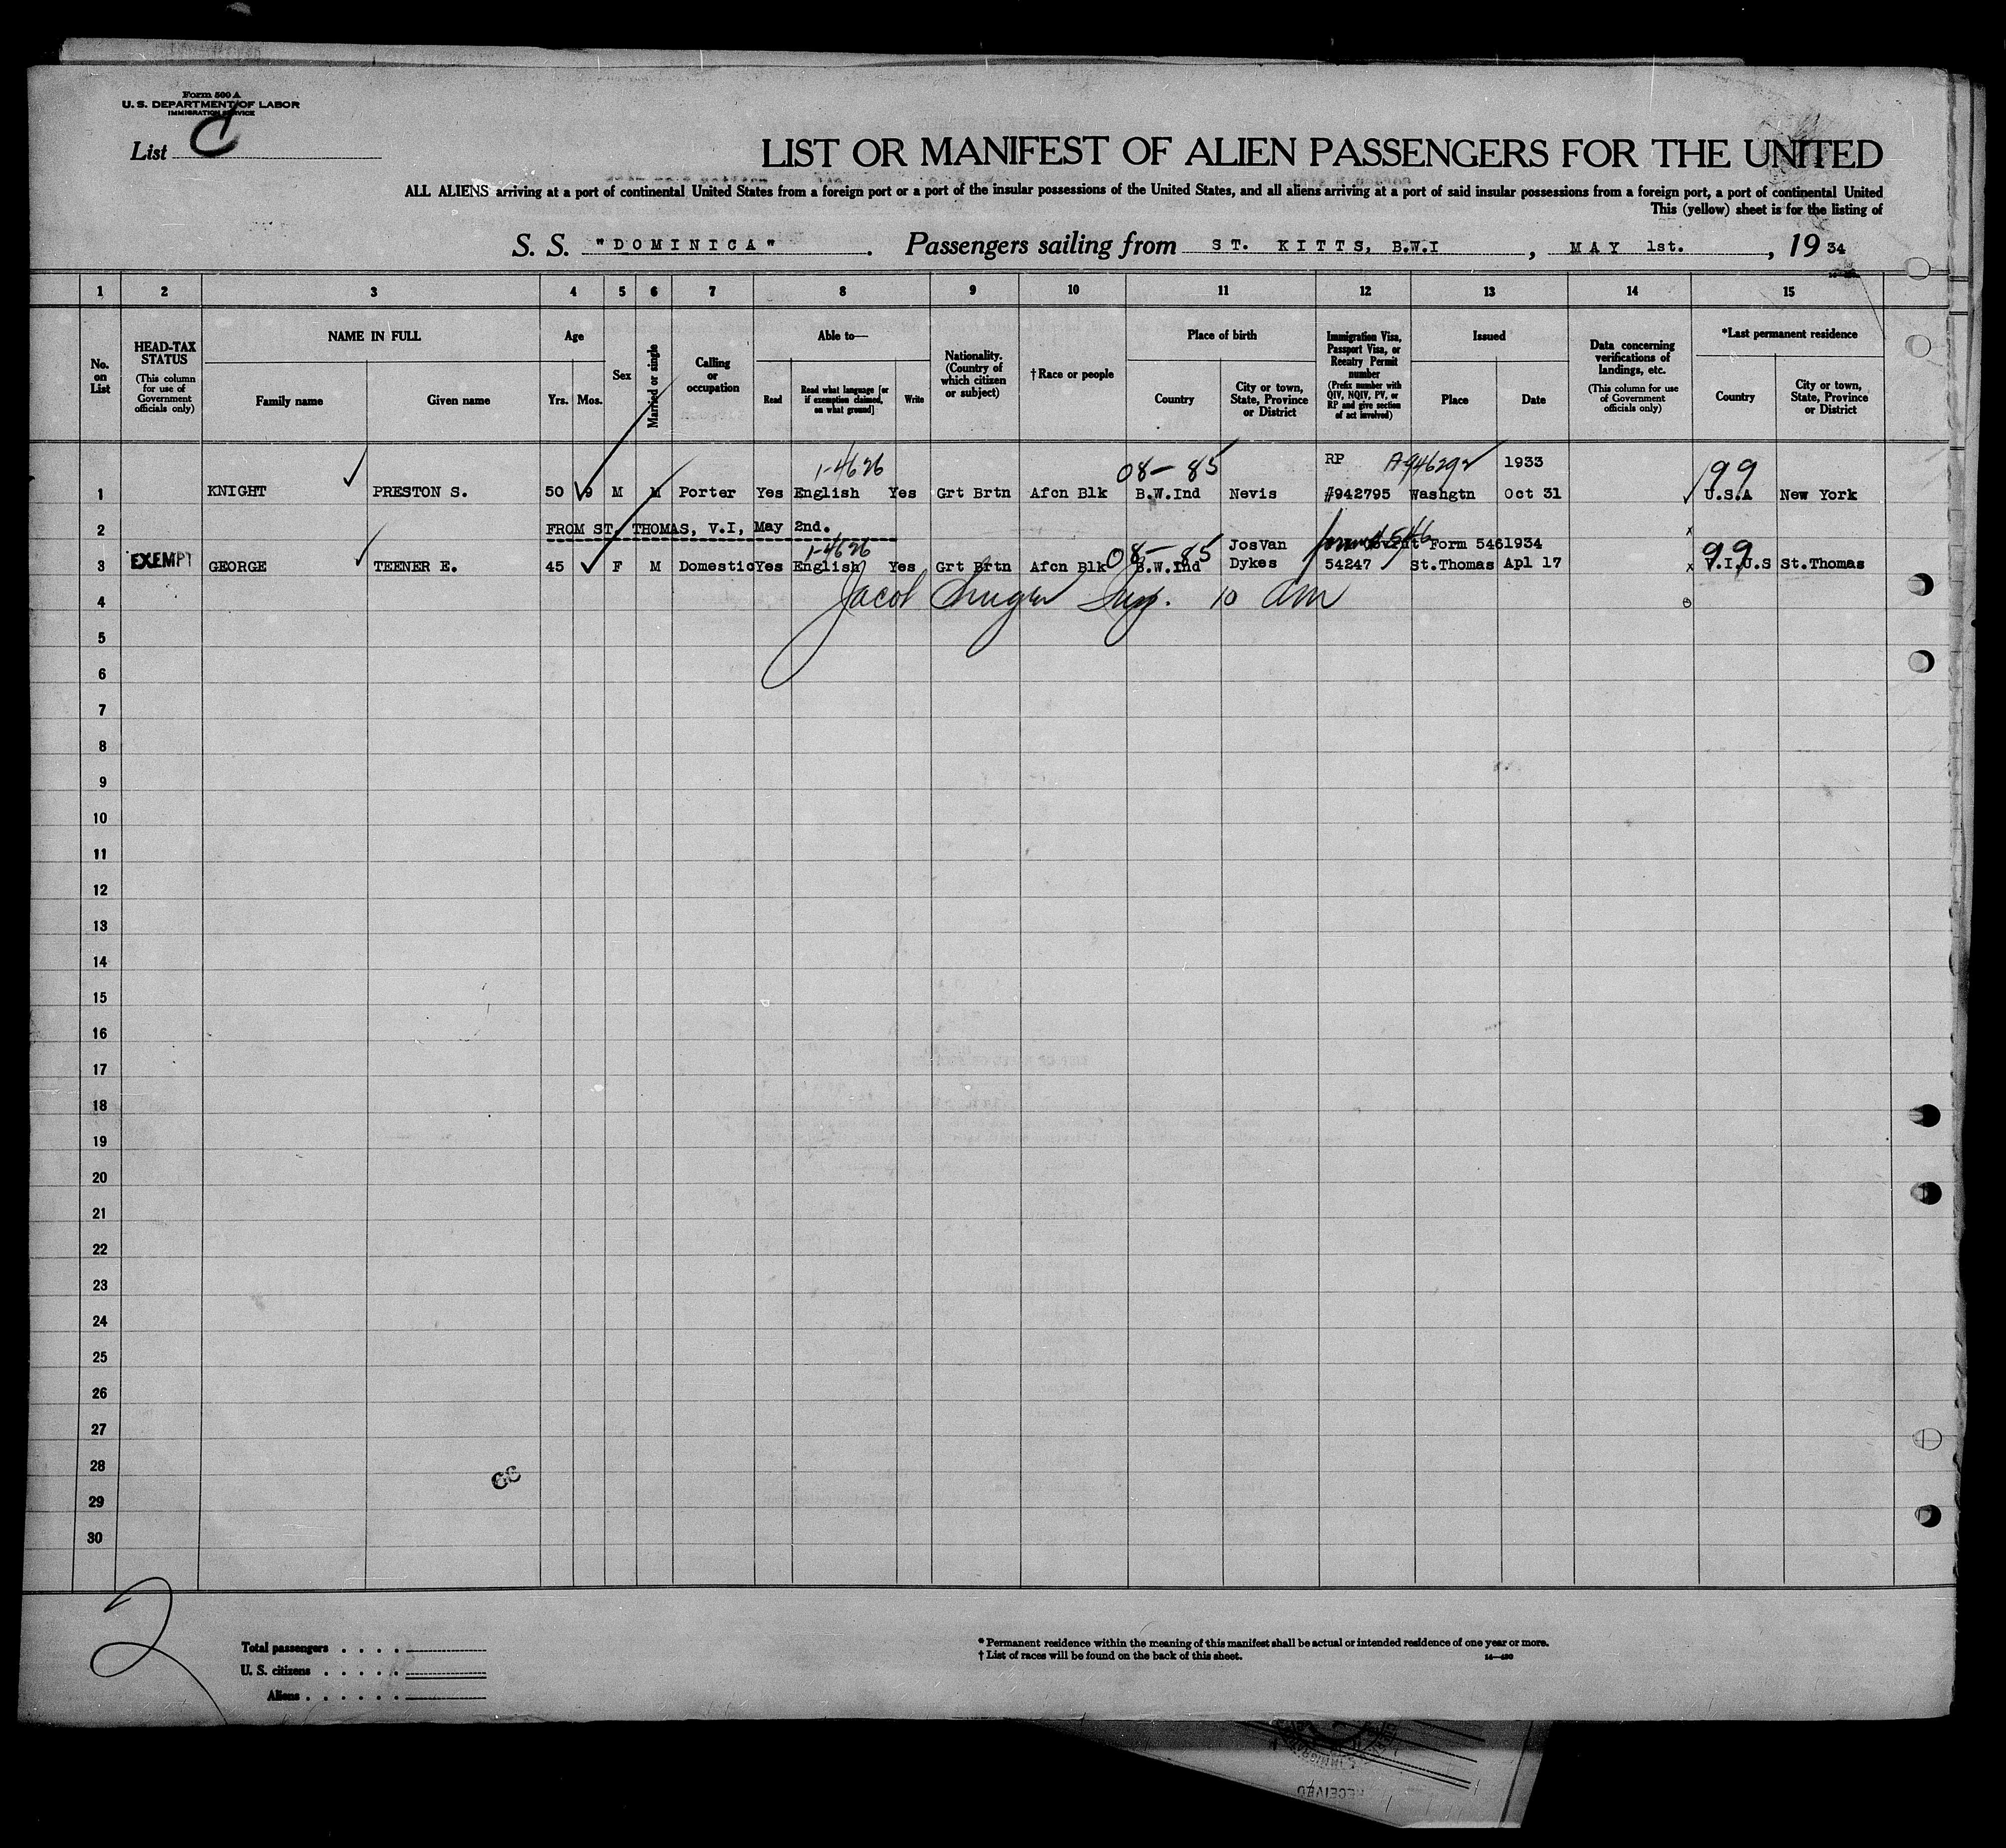 Form 500 A
U. S. DEPARTMENT OF LABOR
IMMIGRATION SERVICE
List C
LIST OR MANIFEST OF ALIEN PASSENGERS FOR THE UNITED
ALL ALIENS arriving at a port of continental United States from a foreign port or a port of the insular possessions of the United States, and all aliens arriving at a port of said insular possessions from a foreign port, a port of continental United
This (yellow) sheet is for the listing of
S. S. "DOMINICA". Passengers sailing from ST. KITTS, B.W.I, MAY 1st., 1934
1 2 3 4 5 6 7 8 9 10 11 12 13 14 15
No. on List
HEAD-TAX STATUS
(This column for use of Government officials only)
NAME IN FULL
Family name
Given name
Age
Yrs. Mos.
Sex
Married or single
Calling or occupation
Able to—
Read
Read what language [or if exemption claimed, on what ground]
Write
Nationality. (Country of which citizen or subject)
†Race or people
Place of birth
Country
City or town, State, Province or District
Immigration Visa, Passport Visa, or Reentry Permit number
(Prefix number with QIV, NQIV, PV, or RP and give section of act involved)
Issued
Place
Date
Data concerning verifications of landings, etc.
(This column for use of Government officials only)
*Last permanent residence
Country
City or town, State, Province or District
1-4626 08-85 RP A946292 1933 99
1 KNIGHT PRESTON S. 50 9 M M Porter Yes English Yes Grt Brtn Afcn Blk B.W.Ind Nevis #942795 Washgtn Oct 31 U.S.A New York
2 FROM ST. THOMAS, V.I, May 2nd.
1-4626 08-85 JosVan Form 546 1934 99
3 EXEMPT GEORGE TEENER E. 45 F M Domestic Yes English Yes Grt Brtn Afcn Blk B.W.Ind Dykes 54247 St.Thomas Apl 17 V.I.U.S St.Thomas
4 Jacob 10 am
5
6
7
8
9
10
11
12
13
14
15
16
17
18
19
20
21
22
23
24
25
26
27
28
29
30
2
Total passengers . . . .
U. S. citizens . . . . .
Aliens . . . . . .
* Permanent residence within the meaning of this manifest shall be actual or intended residence of one year or more.
† List of races will be found on the back of this sheet.
14—430
RECEIVED